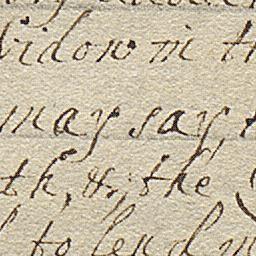 Widow in th
may say, t
th, &, the
to lend m